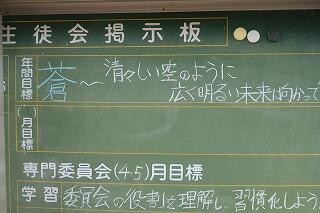 生徒会掲示板
年間目標
蒼～清々しい空のように
広く明るい未来に向かって
( )月目標
専門委員会(4·5)月目標
学習 委員会の役割を理解し、習慣化しよう。